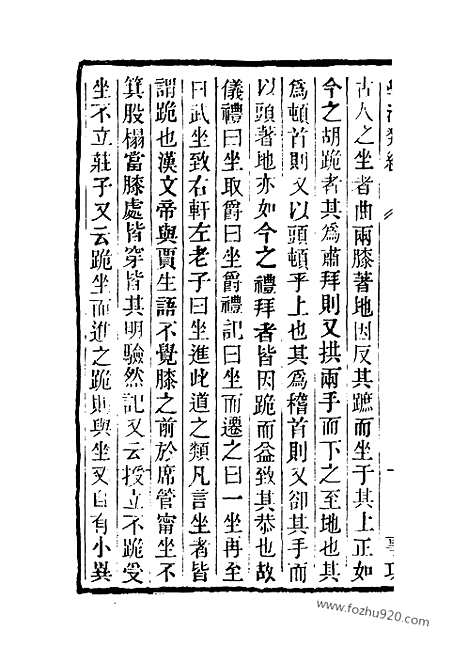 古人之坐者曲兩膝著地因反其蹠而坐于其上正如
今之胡跪者其爲肅拜則又拱兩手而下之至地也其
爲頓首則又以頭頓乎上也其爲稽首則又卻其手而
以頭著地亦如今之禮拜者皆因跪而益致其恭也故
儀禮曰坐取爵曰坐爵禮記曰坐而遷之曰一坐再至
曰武坐致右軒左老子曰坐進此道之類凡言坐者皆
謂跪也漢文帝與賈生語不覺膝之前於席管甯坐不
箕股榻當膝處皆穿皆其明驗然記又云授立不跪受
坐不立莊子又云跪坐而進之跪則與坐又自有小異
www.fozhu920.com